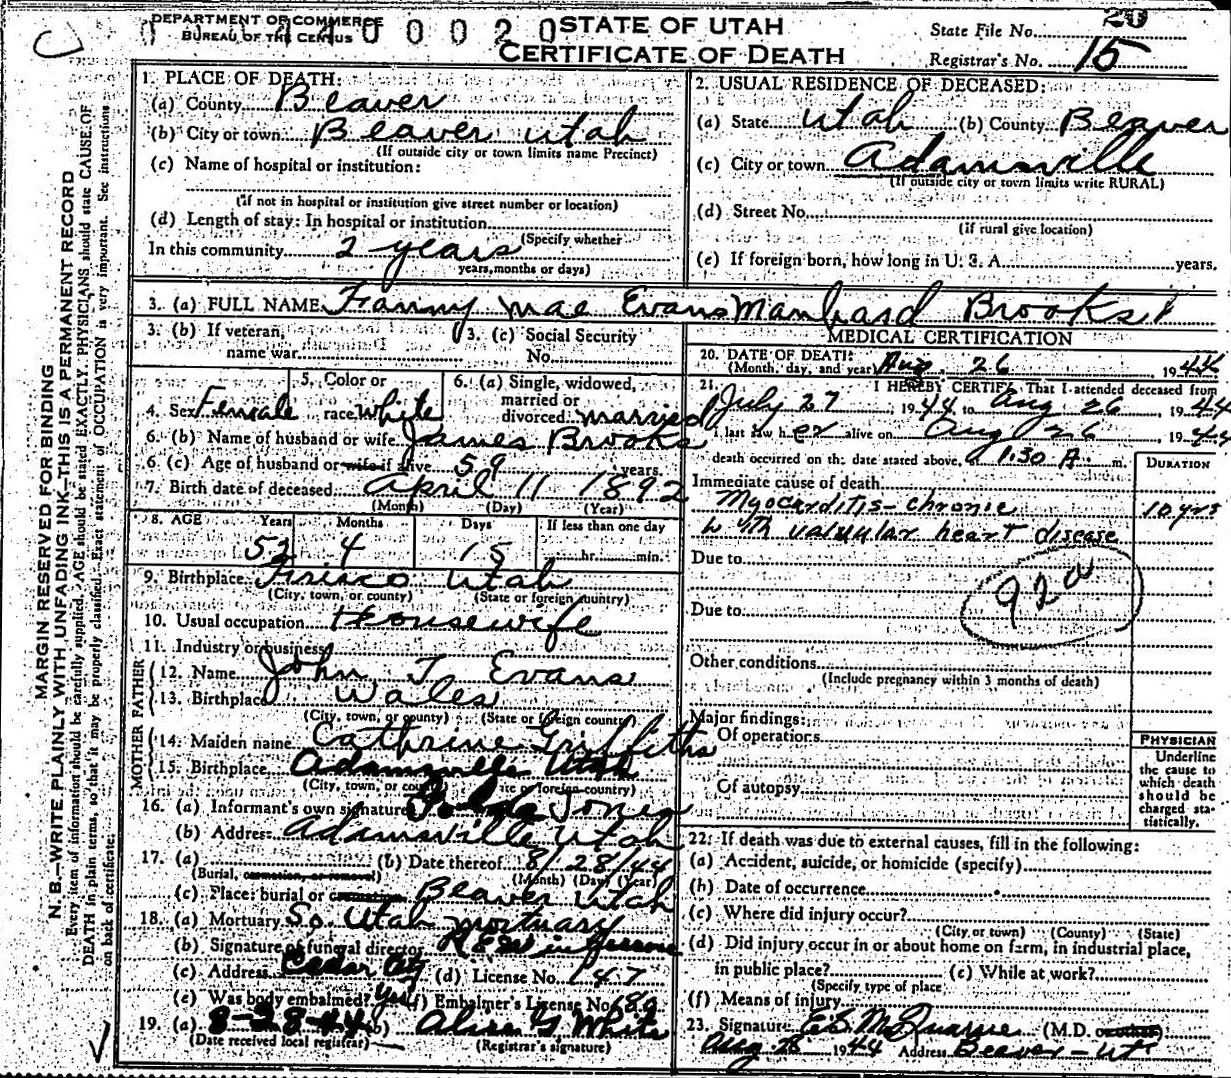 DEPARTMENT OF COMMERCE
BUREAU OF THE CENSUS
0 0 2 0
STATE OF UTAH
CERTIFICATE OF DEATH
State File No. 20
Registrar's No. 15
MARGIN RESERVED FOR BINDING
N. B.—WRITE PLAINLY WITH UNFADING INK—THIS IS A PERMANENT RECORD
Every item of information should be carefully supplied. AGE should be stated EXACTLY. PHYSICIANS should state CAUSE OF
DEATH in plain terms, so that it may be properly classified. Exact statement of OCCUPATION is very important. See instructions
on back of certificate.
1. PLACE OF DEATH:
(a) County Beaver
(b) City or town Beaver Utah
(If outside city or town limits name Precinct)
(c) Name of hospital or institution:
(If not in hospital or institution give street number or location)
(d) Length of stay: In hospital or institution
(Specify whether
In this community 2 years
years, months or days)
2. USUAL RESIDENCE OF DECEASED:
(a) State Utah (b) County Beaver
(c) City or town Adamsville
(If outside city or town limits write RURAL)
(d) Street No.
(If rural give location)
(e) If foreign born, how long in U. S. A. years.
3. (a) FULL NAME Fanny Mae Evans Manhard Brooks
3. (b) If veteran,
name war
3. (c) Social Security
No.
4. Sex Female
5. Color or
race White
6. (a) Single, widowed,
married or
divorced married
6. (b) Name of husband or wife James Brooks
6. (c) Age of husband or wife if alive 59 years.
7. Birth date of deceased April 11 1892
(Month) (Day) (Year)
8. AGE Years Months Days If less than one day
52 4 15 hr. min.
9. Birthplace Frisco Utah
(City, town, or county) (State or foreign country)
10. Usual occupation Housewife
11. Industry or business
FATHER
12. Name John T Evans
13. Birthplace Wales
(City, town, or county) (State or foreign country)
MOTHER
14. Maiden name Cathrine Griffiths
15. Birthplace Adamsville Utah
(City, town, or county) (State or foreign country)
16. (a) Informant's own signature Jones
(b) Address Adamsville Utah
17. (a) (b) Date thereof 8/28/44
(Burial, cremation, or removal) (Month) (Day) (Year)
(c) Place: burial or cremation Beaver Utah
18. (a) Mortuary So. Utah Mortuary
(b) Signature of funeral director
(c) Address Cedar City (d) License No. 147
(e) Was body embalmed? yes (f) Embalmer's License No. 689
19. (a) 8-28-44 (b) White
(Date received local registrar) (Registrar's signature)
MEDICAL CERTIFICATION
20. DATE OF DEATH:
(Month, day, and year) Aug. 26 1944
21. I HEREBY CERTIFY, That I attended deceased from
July 27, 1944 to Aug 26, 1944
I last saw her alive on Aug 26, 1944
death occurred on the date stated above, at 1:30 A. m.
DURATION
Immediate cause of death
Myocarditis - chronic 10 yrs
with valvular heart disease
Due to
92a
Due to
Other conditions
(Include pregnancy within 3 months of death)
Major findings:
Of operations
Of autopsy
PHYSICIAN
Underline
the cause to
which death
should be
charged sta-
tistically.
22. If death was due to external causes, fill in the following:
(a) Accident, suicide, or homicide (specify)
(b) Date of occurrence
(c) Where did injury occur?
(City or town) (County) (State)
(d) Did injury occur in or about home on farm, in industrial place,
in public place? (e) While at work?
(Specify type of place
(f) Means of injury
23. Signature McQuarrie (M.D. or other)
Aug 28 1944 Address Beaver - Ut